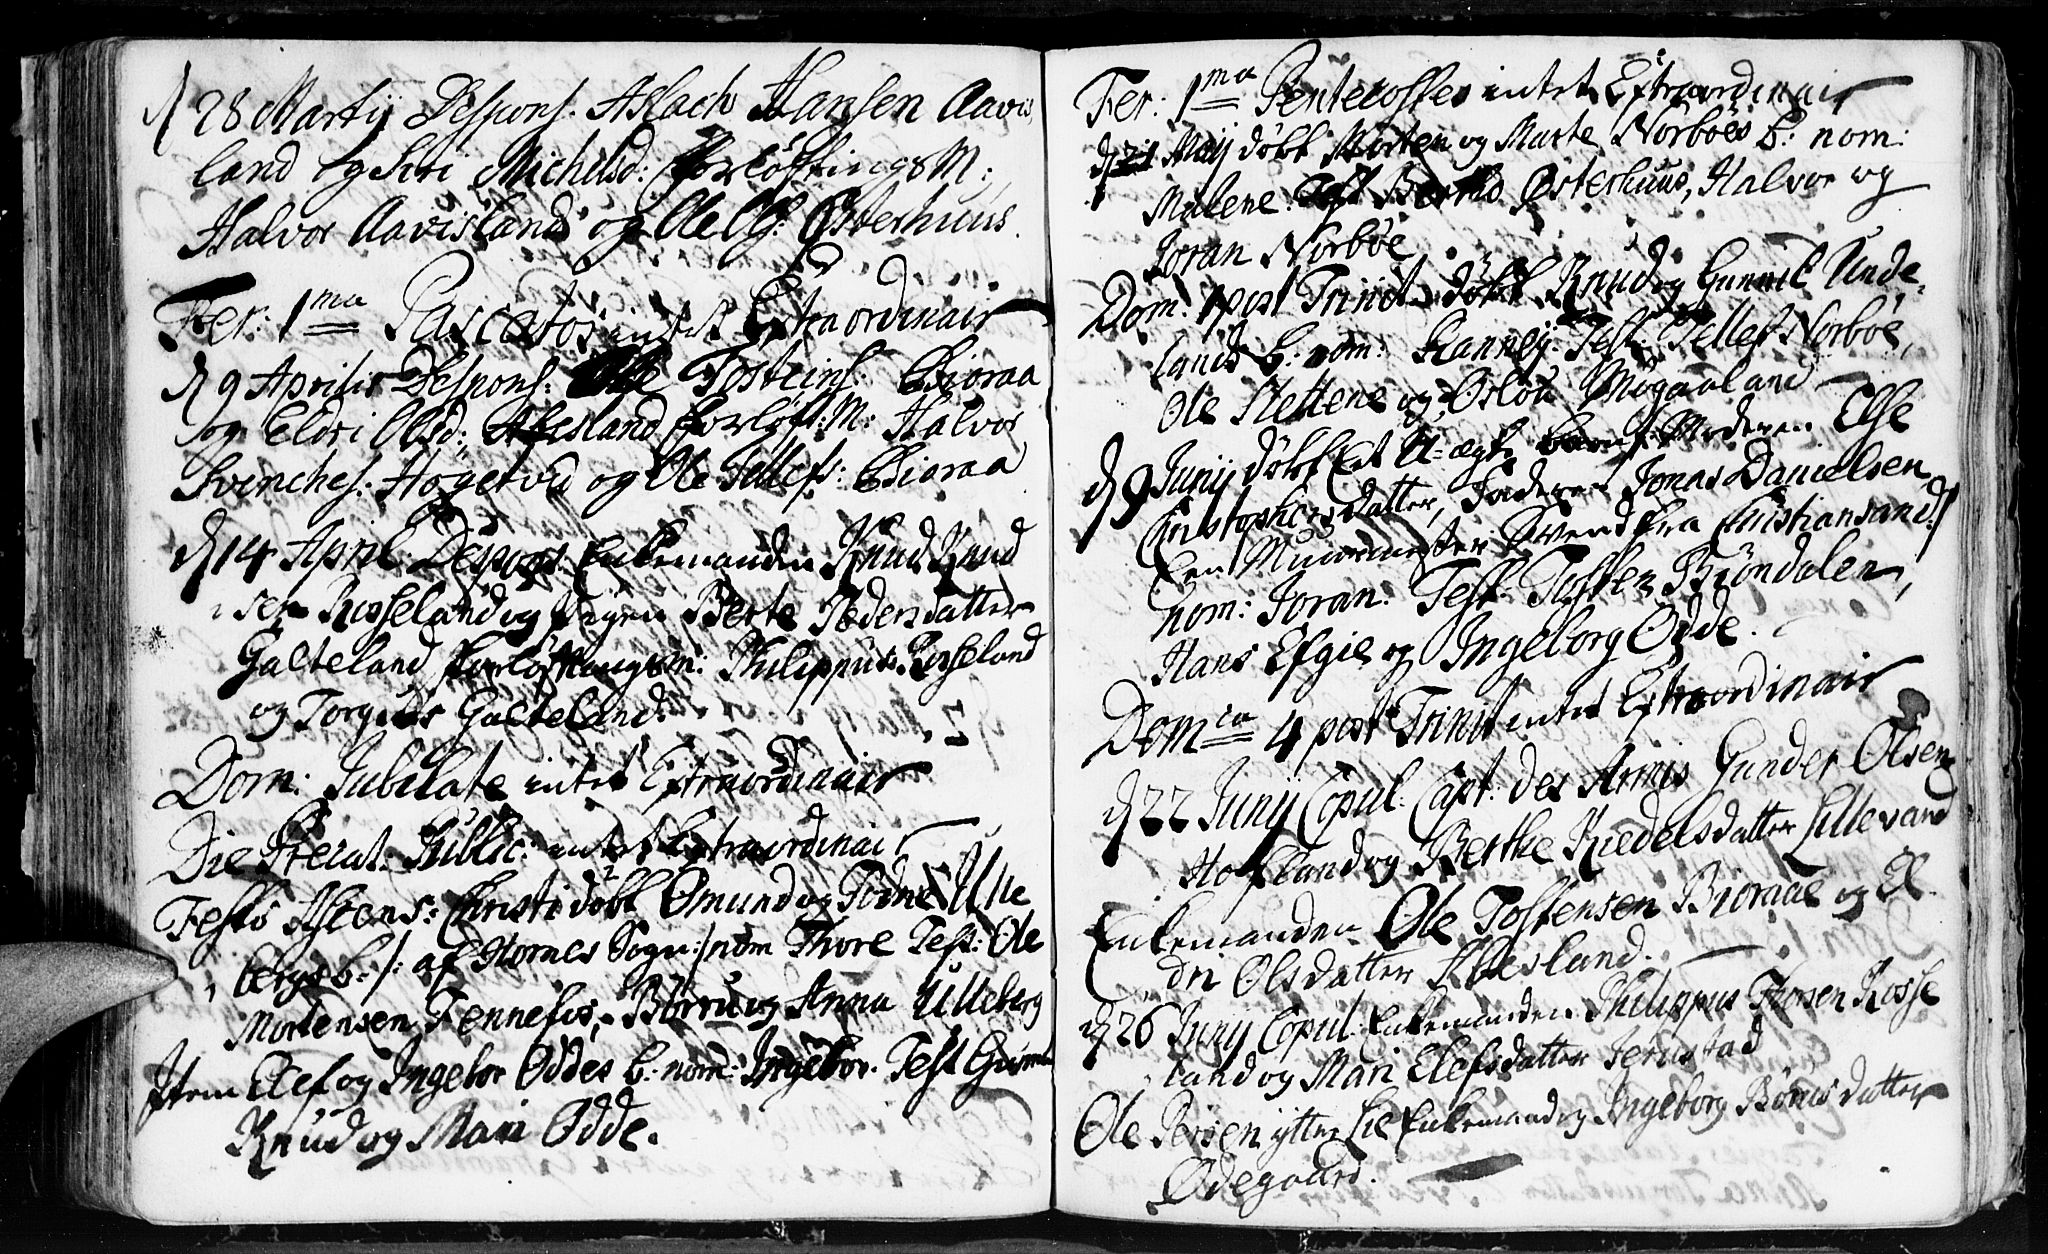 d 28 Martij Despons. Aslach Hansen Aavis,
land og Siri Michelsd: forløftings M:,
Halvor Aavisland og Ole Ols: Østerhuus.
Fer: 1ma Pascatos intet Extraordinair
d 9 Aprilis Despons: Ole Tosteins: Bioraa
og Eldri Olsd: Abesland forløft: M: Halvor
Svinches: Høgetvid og Ole Tellefs: Bioraa
d 14 April. Despons. Enkemanden Knud Knud
sen Rosseland og Pigen Berte Pedersdatter
Galteland forløftningsm: Philippus Rosseland
og Torgius Galteland.
Dom: Jubilate intet Extraordinair
Die Preiat. Public: intet Extraordinair
Festo Ascens: Christi døbt Omund og Todne Ulle
bergs b: /: af Hornes Sogn :/ nom Thore Test: Ole
Mortensen Fennefos, Børru og Anna Ulleberg
Item Elef og Ingebor Oddes b: nom: Ingebor. Test Gunni
Knud og Mari Odde.
Fer: 1ma Pentecostes intet Extraordinair
d 21 Maij døbt Morten og Marte Norbøes b: nom:
Malene. Test Berthe Østerhuus, Halvor og
Joran Norbøe
Dom: 1 post Trinit døbt Knud og Gunnil Unde,
lands b: nom: Ranney. Test. Tellef Norbøe,
Ole Slettene og Oslou Mugaaland
d 9 Junij døbt Et U-ægte barn. Moderen Else
Christophersdatter, Faderen Jonas Danielsen
Een Muurmester Svend fra Christiansand.
nom: Joran. Test. Tosten Brøndalen,
Hans Efgie og Ingeborg Odde.
Domca 4 post Trinit intet Extraordinair
d 22 Junij Copul: Capt: des Armis Gunder Olsen
Hofland og Berthe Kiedelsdatter Lillevand
Enkemanden Ole Tostensen Bioraae og El
dri Olsdatter Abesland.
d 26 Junij Copul. Enkemanden Philippus Thorsen Rosse
land og Mari Elefsdatter Jerustad
Ole Persen ytter Lie Enkemand og Ingeborg Børuisdatter
Ødegaard.